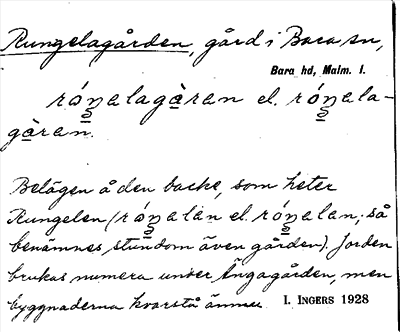 Rungelagården, gård i Bara sn,
Bara hd, Malm. l.
róŋ̠əlagàrən el. róŋ̠əla-
gàrən.
Belägen å den backe, som heter
Rungelen (róŋ̠ələn el. róŋ̠ələn; så
benämnes stundom även gården). Jorden
brukas numera under Ängagården, men
byggnaderna kvarstå ännu. I. INGERS 1928